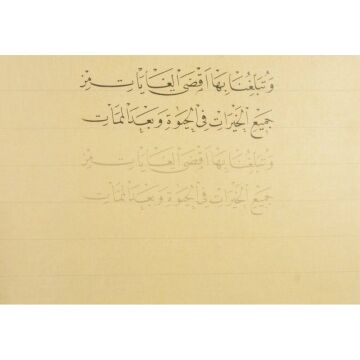 وَتُبَلِّغُنَا بِهَا اَقْصَى الْغَايَاتِ مِنْ
جَمِيعِ الْخَيْرَاتِ فِى الْحَيٰوةِ وَبَعْدَ الْمَمَاتِ
وَتُبَلِّغُنَا بِهَا اَقْصَى الْغَايَاتِ مِنْ
جَمِيعِ الْخَيْرَاتِ فِى الْحَيٰوةِ وَبَعْدَ الْمَمَاتِ